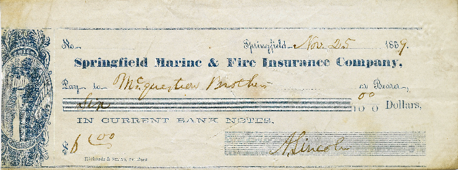 No. Springfield, Nov 25 1859.
Springfield Marine & Fire Insurance Company,
Pay to McQuestion Brothers or Bearer
Six 00/100 Dollars,
IN CURRENT BANK NOTES.
$6.00 A. Lincoln